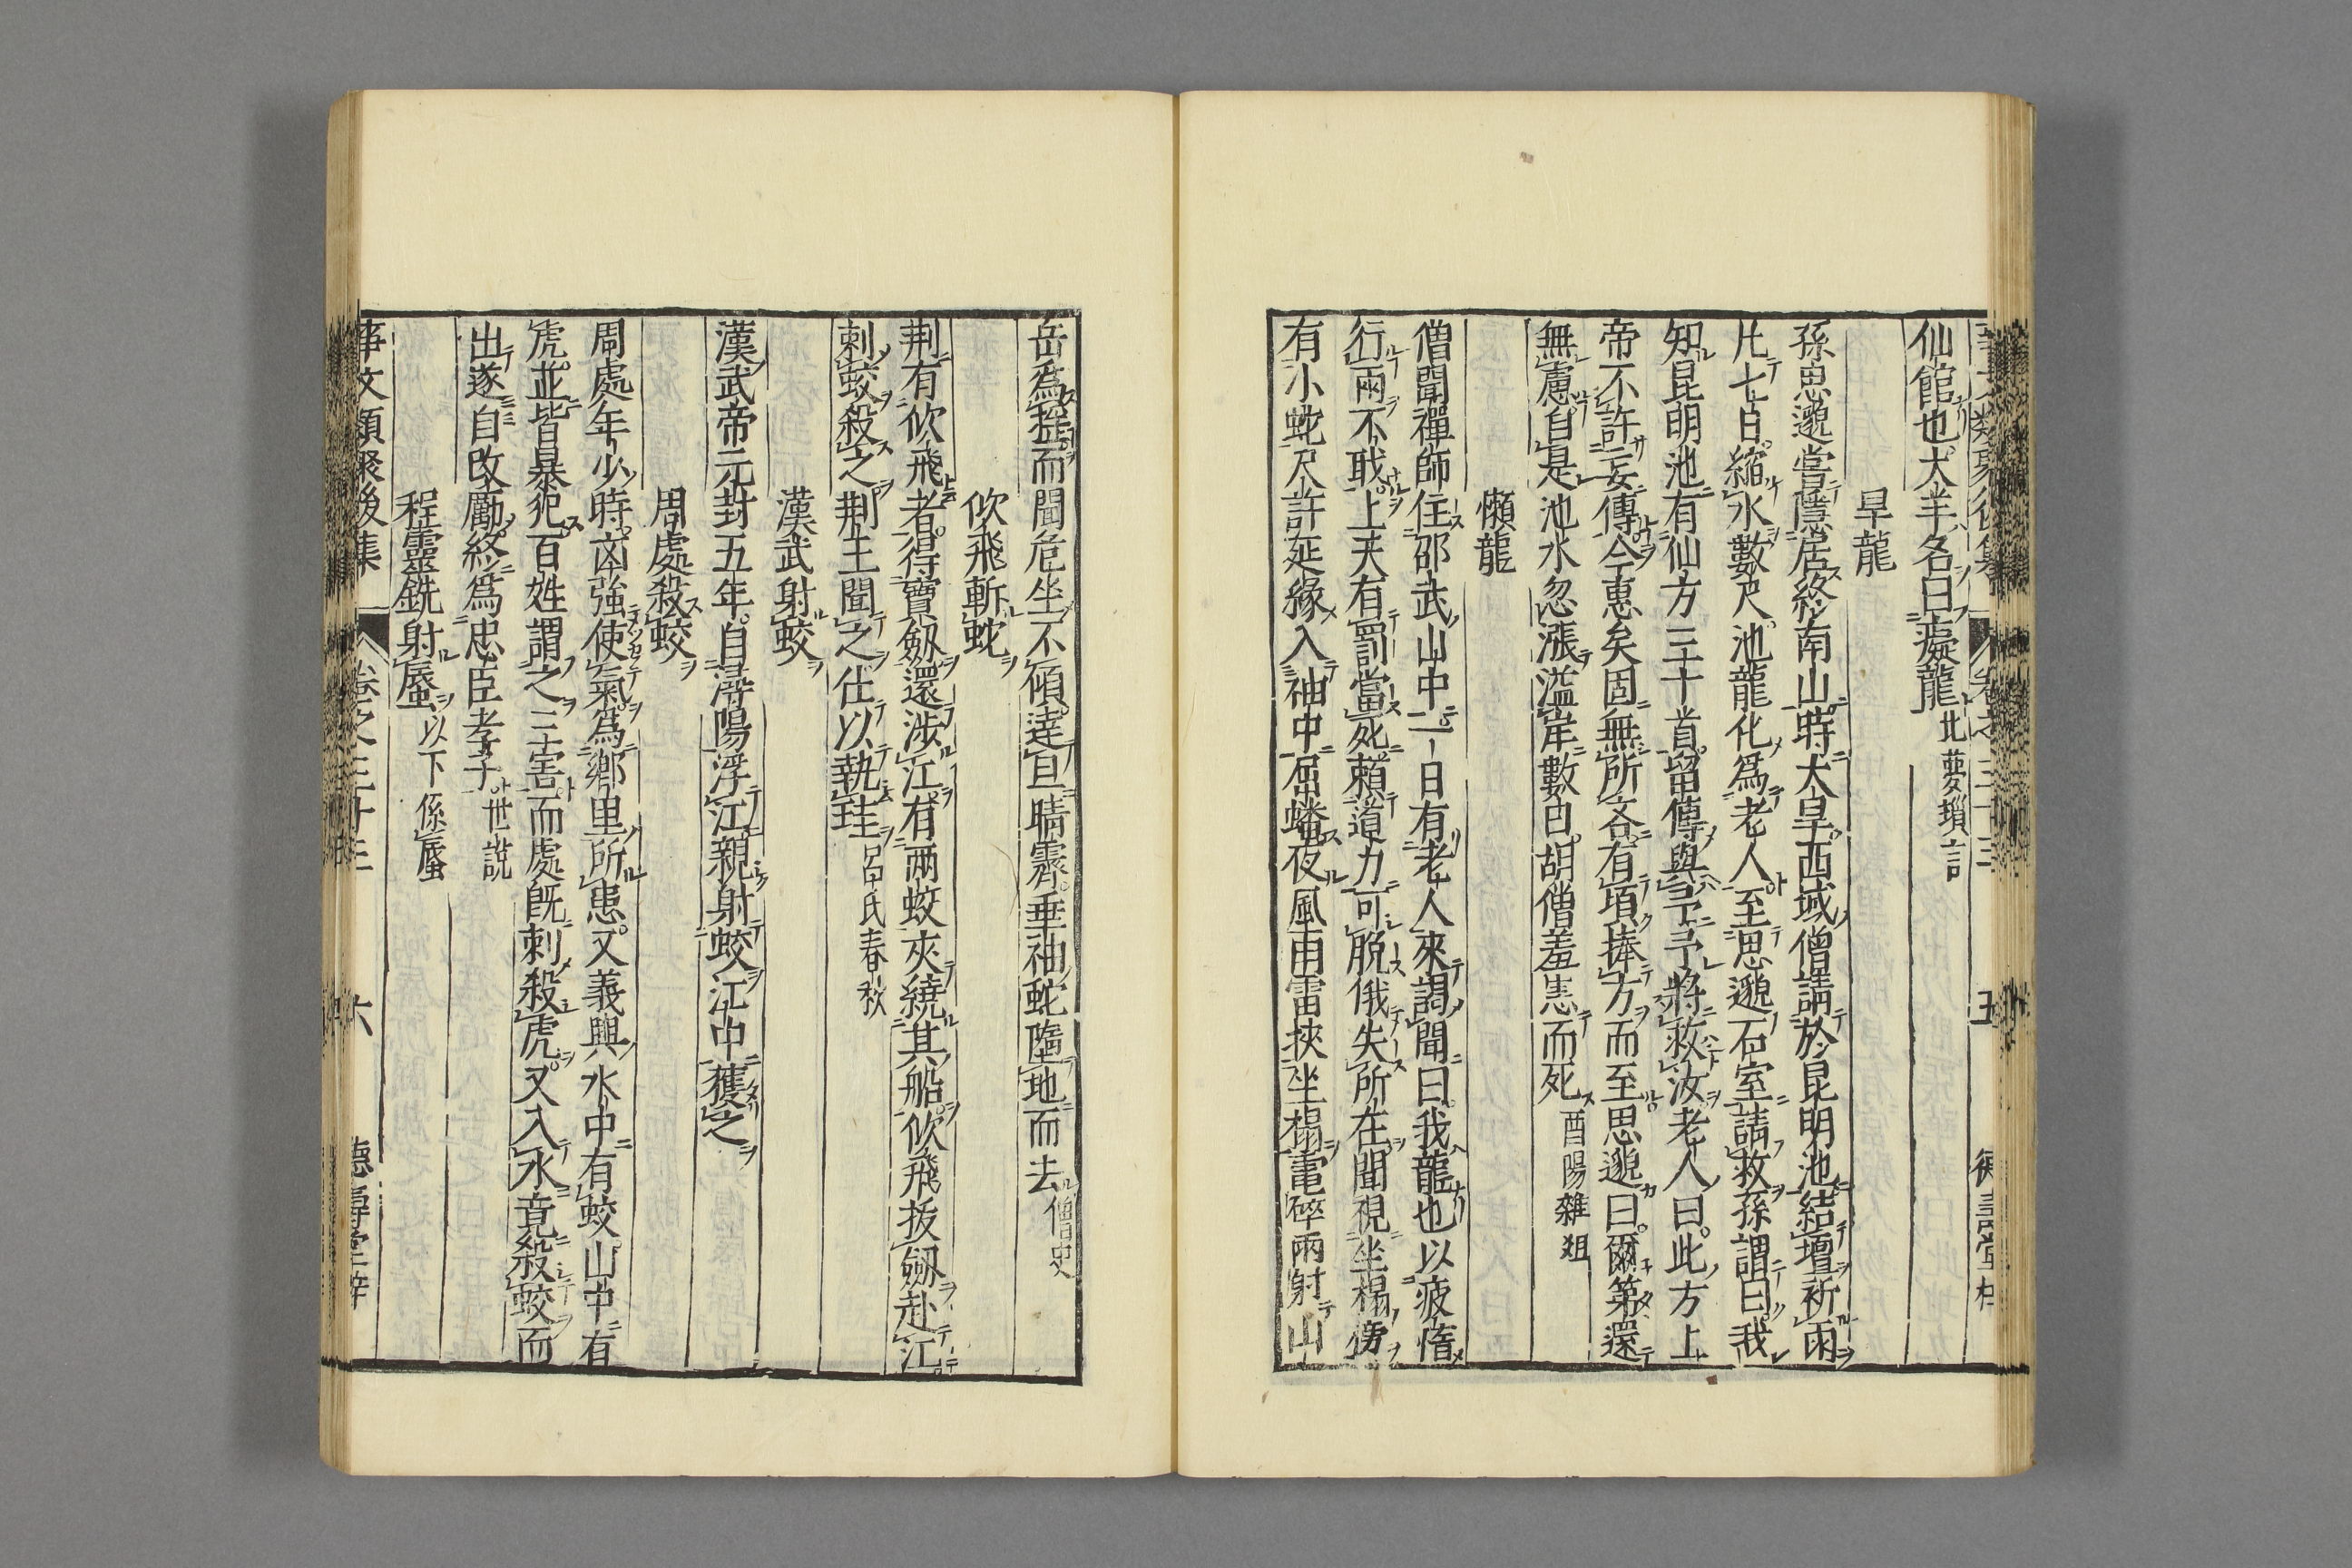 仙館也大羊名曰癡龍北夢瑣言
旱龍
孫思邈嘗隱居終南山時大旱西域僧請於昆明池結壇祈雨
凡七日縮水數尺池龍化爲老人至思邈石室請救孫謂曰我
知昆明池有仙方三十首留傳與予予將救汝老人曰此方上
帝不許妄傳今惠矣固無所吝有頃捧方而至思邈曰爾第還
無慮自是池水忽漲溢岸數日胡僧羞恚而死酉陽雜俎
懶龍
僧聞禪師住邵武山中一日有老人來謁聞曰我龍也以疲惰
行雨不職上天有罰當死賴道力可脫俄失所在聞視坐榻傍
有小蛇尺許延緣入袖中屈蟠夜風雨雷挾坐榻電碎雨射山
岳爲搖而聞危坐不傾逹旦晴霽垂袖蛇墮地而去僧史
佽飛斬蛇
荆有佽飛者得寶劔還涉江有兩蛟夾繞其船佽飛拔劔赴江
刺蛟殺之荆王聞之仕以執珪呂氏春秋
漢武射蛟
漢武帝元封五年自潯陽浮江親射蛟江中獲之
周處殺蛟
周處年少時㐫強使氣爲鄉里所患又義興水中有蛟山中有
虎並皆暴犯百姓謂之三害而處旣刺殺虎又入水竟殺蛟而
出遂自改勵終爲忠臣孝子世說
程靈銑射蜃以下係蜃
事文類聚後集 卷之三十三 六 德壽堂梓